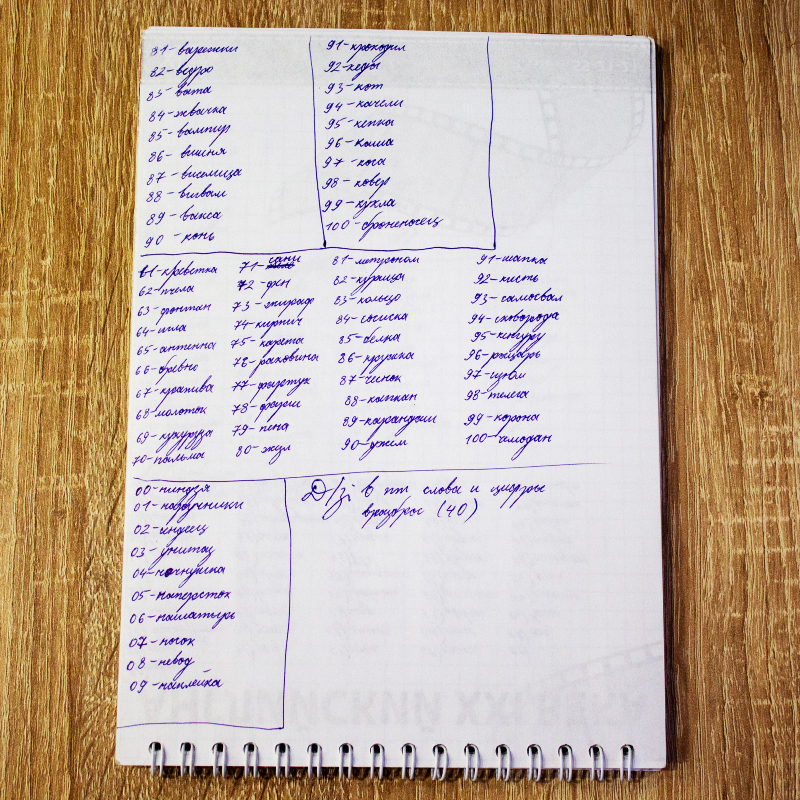 81-варежки
82-ведро
83-вата
84-жвачка
85-вампир
86-вишня
87-виселица
88-вигвам
89-вакса
90-конь
91-крокодил
92-кеды
93-кот
94-качели
95-кепка
96-каша
97-коса
98-ковёр
99-кукла
100-броненосец
61-креветка
62-пчела
63-фонтан
64-игла
65-антенна
66-бревно
67-крапива
68-молоток
69-кукуруза
70-пальма
71-сани
72-фен
73-жираф
74-кирпич
75-карета
76-раковина
77-фартук
78-фауст
79-пена
80-жезл
81-
82-курица
83-кольцо
84-сосиска
85-белка
86-кружка
87-чеснок
88-капкан
89-карандаш
90-джем
91-шапка
92-кисть
93-самосвал
94-сковорода
95-кенгуру
96-рыцарь
97-изюм
98-телега
99-корона
100-чемодан
00-ниндзя
01-наручники
02-индеец
03-унитаз
04-ночнушка
05-напёрсток
06-нашатырь
07-носок
08-невод
09-наклейка
Д/з: в пт слова и цифры
вразброс (40)
АНГЛИЙСКИЙ XXI ВЕКА